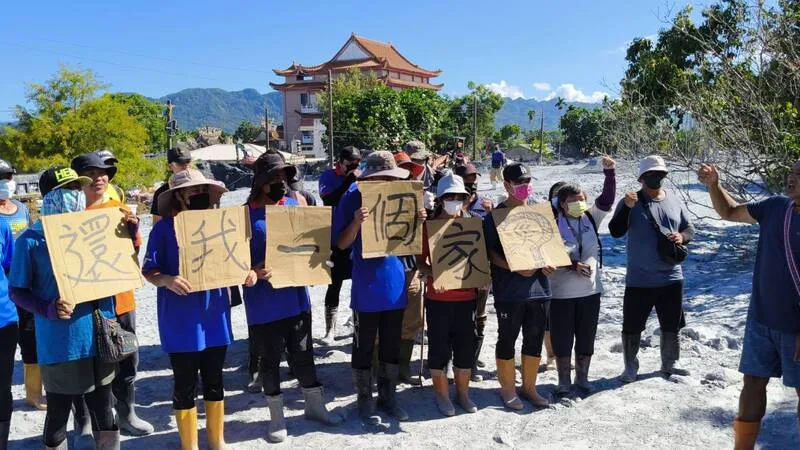 還我一個家